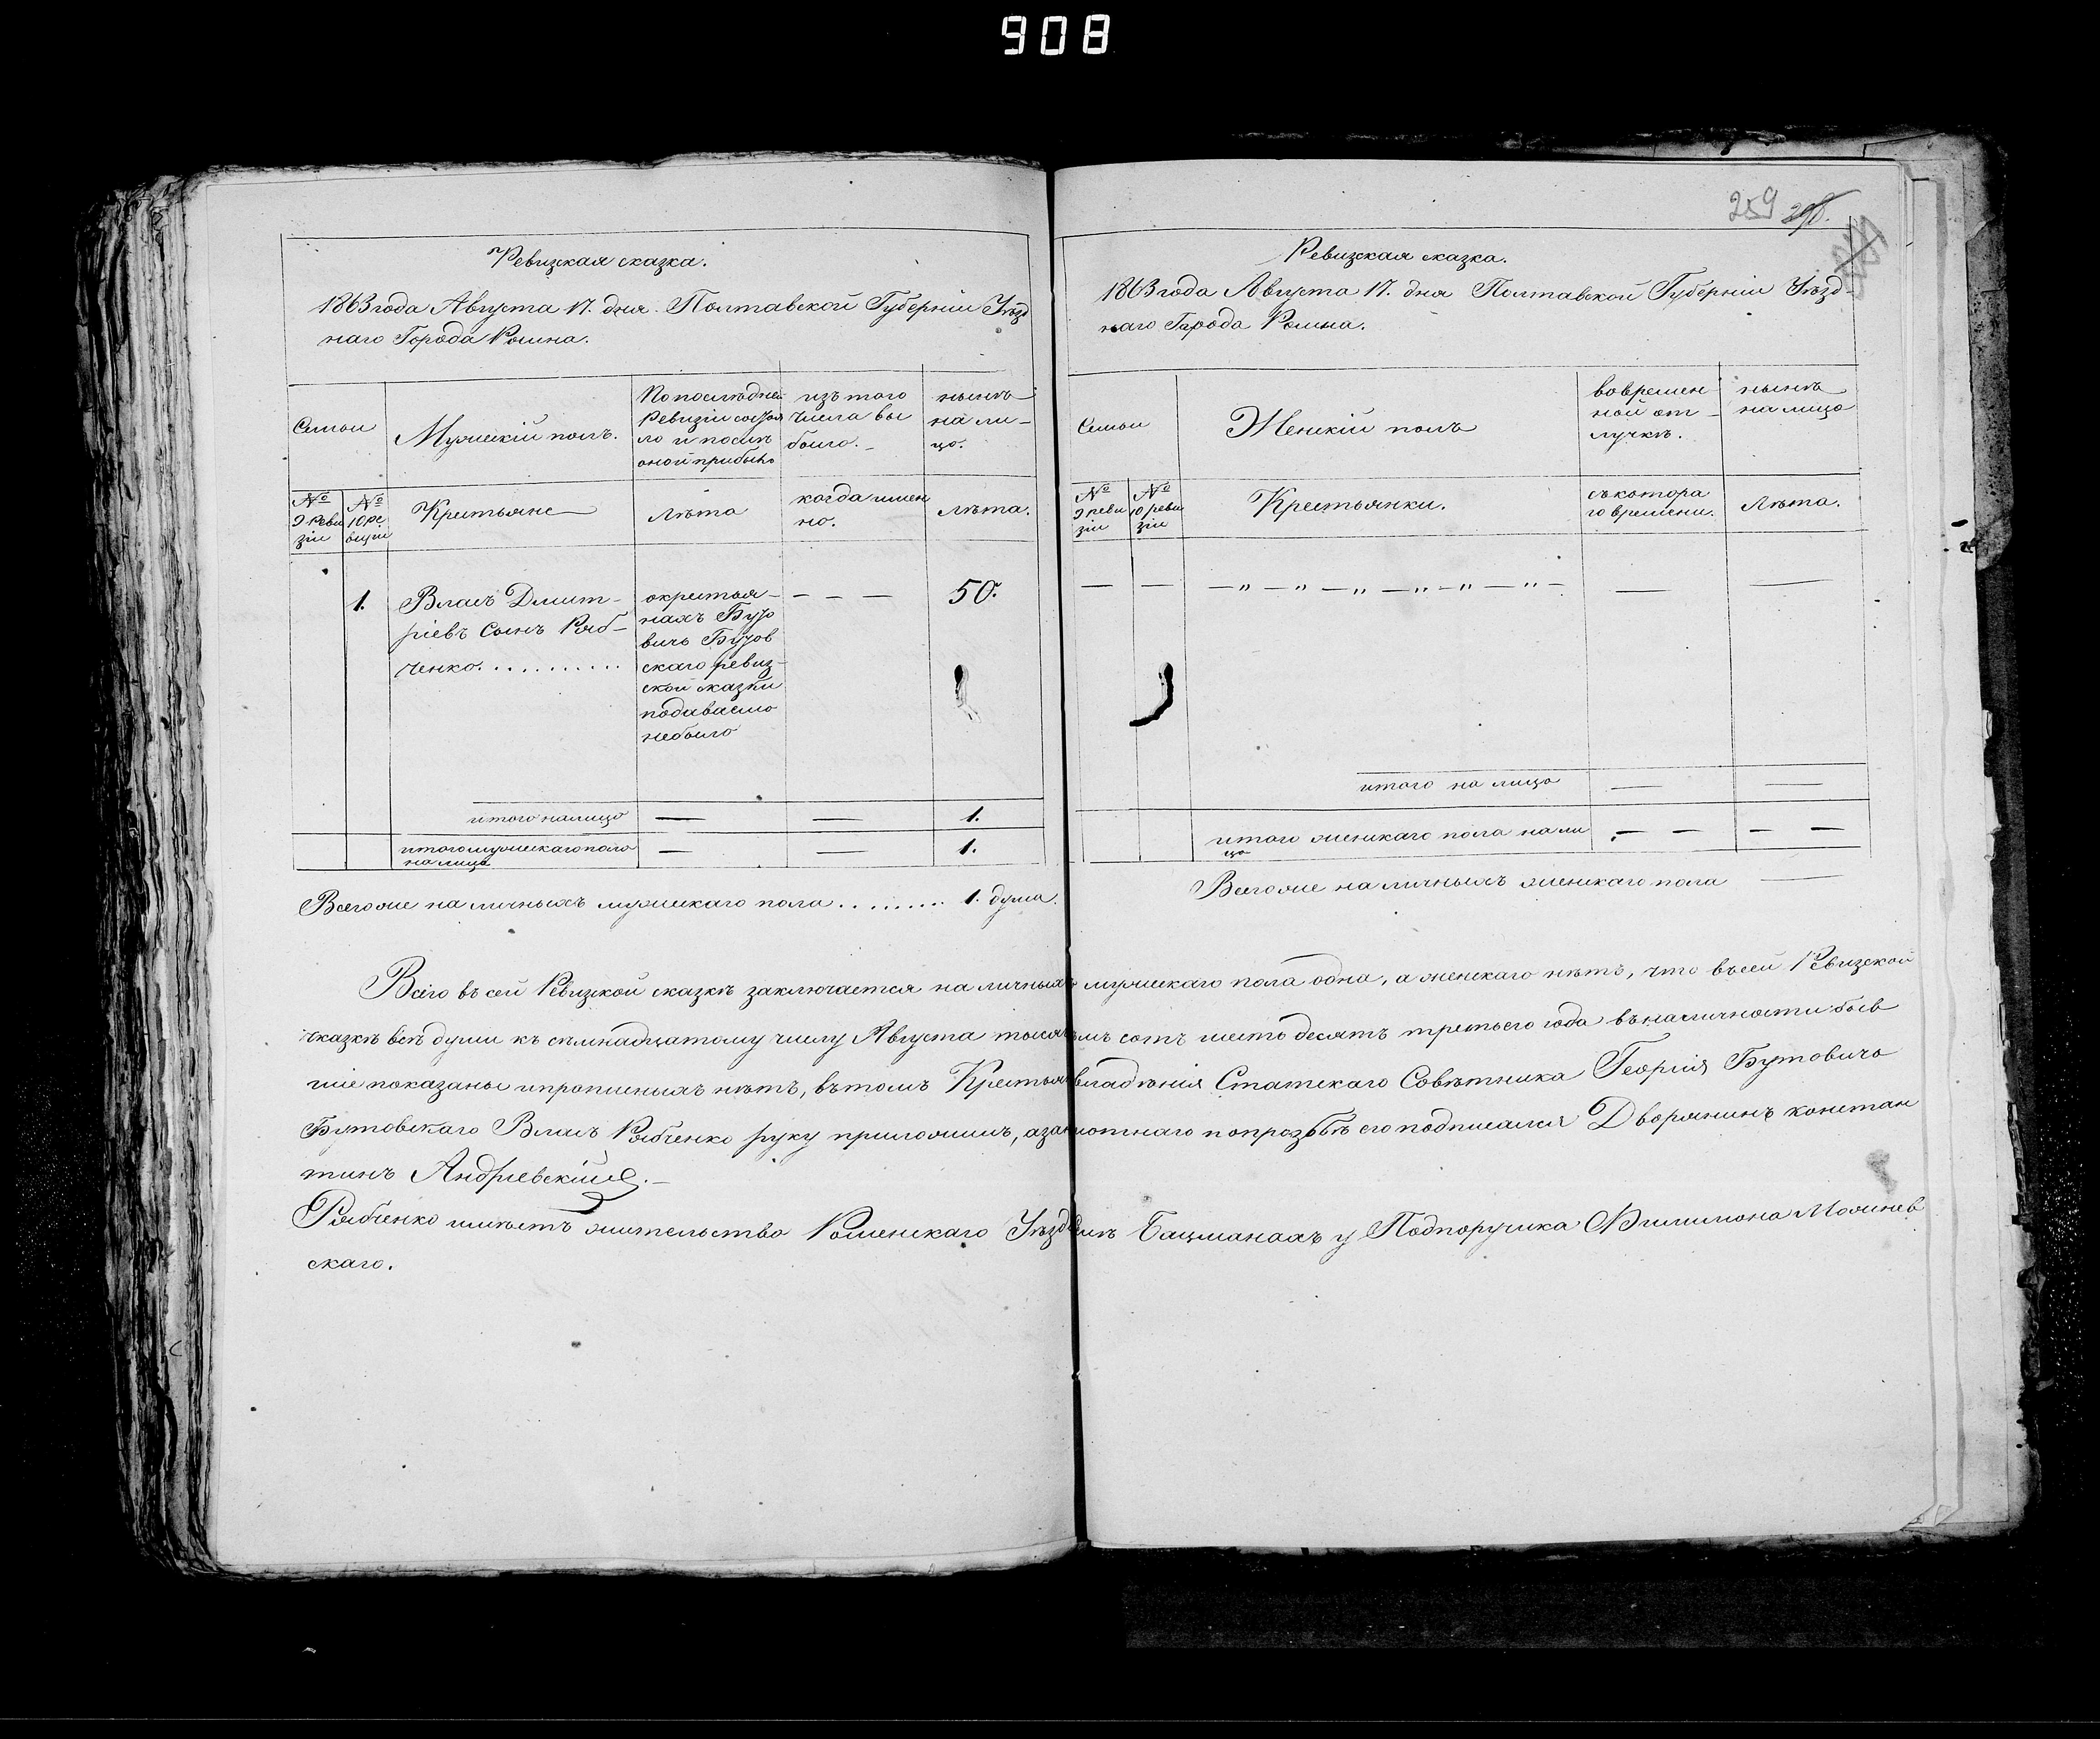 908
259
Ревизская сказка.
1863 года Августа 17. дня. Полтавской Губерніи Уѣзд
наго Города Ромна.
Семьи
Мужескій полъ.
По послѣдней
Ревизіи состоя
ло и послѣ
оной прибыло
изъ того
числа вы
было.
нынѣ
на ли-
цо.
№ 9 реви зіи
№ 10 ре
Крестьяне
лѣта
когда имен
но.
лѣта.
1.
Власъ Дмит-
ріевъ Сынъ Ряб-
ченко. . . . . . . . . . .
о крестья-
нахъ
скаго ревиз-
ской сказки
подаваемо
небыло
— — —
50.
итого налицо — — 1.
итого мужескаго пола
на лицо — — 1.
Всего же на личныхъ мужескаго пола . . . . . . . . . 1. душа.
Ревизская сказка.
1863 года Августа 17. дня Полтавской Губерніи Уѣзд-
наго Города Ромна.
Семьи
Женскій полъ
во времен
ной от-
лучкѣ.
нынѣ
на лицо
№ 9 реви зіи
№ 10 реви зіи
Крестьянки.
съ котора
го времени.
Лѣта.
— — — „ — „ — „ — „ — „ — „ — — —
итого на лицо — —
итого женскаго пола на ли
цо — — — —
Всего же на личныхъ женскаго пола —
Всего въ сей Ревизской сказкѣ заключается на личныхъ мужескаго пола одна, а женскаго нѣтъ, что въ сей Ревизской
сказкѣ всѣ души къ семнадцатому числу Августа сотъ шестьдесятъ третьего года въ наличности быв
шіе показаны и прописныхъ нѣтъ, въ томъ владѣнія Статскаго Совѣтника Георгія Бутовича
Бутовскаго Власъ Рябченко руку приложилъ, а по прозьбѣ его подписался Дворянинъ констан
тинъ Андріевскій.
Рябченко имѣетъ жительство Роменскаго Бацманахъ у Подпоручика Филимона
скаго.